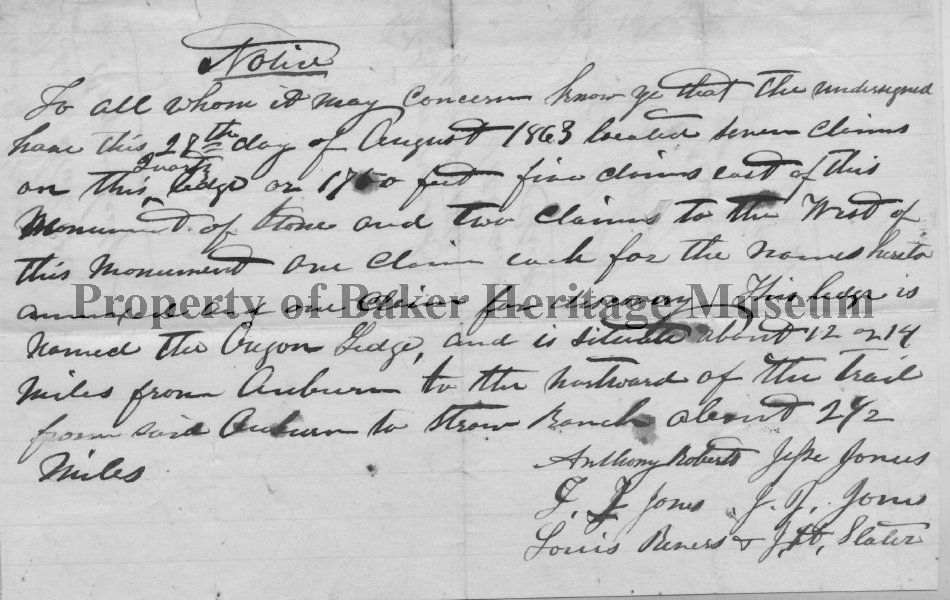 Notice
To all whom it may concern know ye that the undersigned
have this 28th day of August 1863 located seven claims
on this Quartz ledge or 1750 feet five claims east of this
Monument of Stone and two claims to the West of
this Monument one claim each for the names hereto
annexed and one claim for discovery This ledge is
Property of Baker Heritage Museum
named the Oregon Ledge, and is situate about 12 or 14
miles from Auburn to the nortward of the trail
from said Auburn to Straw Ranch about 2 1/2
Miles
Anthony Roberts Jesse Jones
J. Jones J. T. Jones
Louis & J. Slater